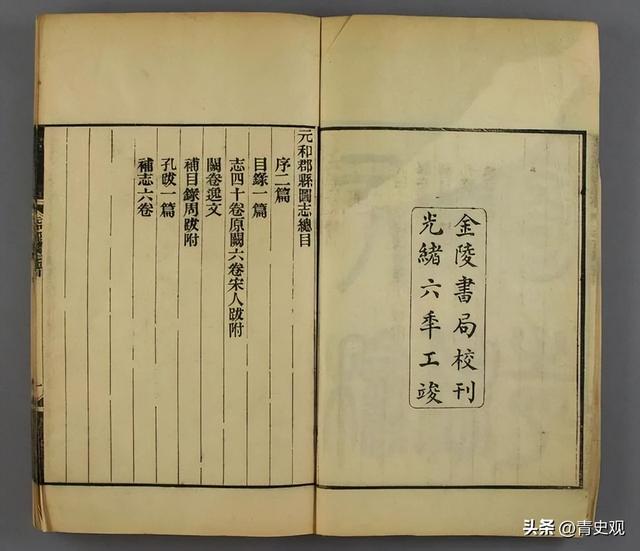 金陵書局校刊
光緒六年工竣
元和郡縣圖志總目
序二篇
目錄一篇
志四十卷原闕六卷宋人跋附
闕卷逸文
補目錄周跋附
孔跋一篇
補志六卷
头条 @青史观